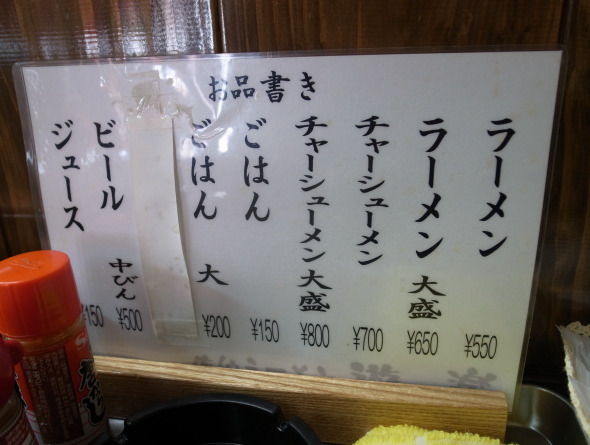 お品書き
ラーメン ¥550
ラーメン 大盛 ¥650
チャーシューメン ¥700
チャーシューメン 大盛 ¥800
ごはん ¥150
ごはん 大 ¥200
ビール 中びん ¥500
ジュース ¥150